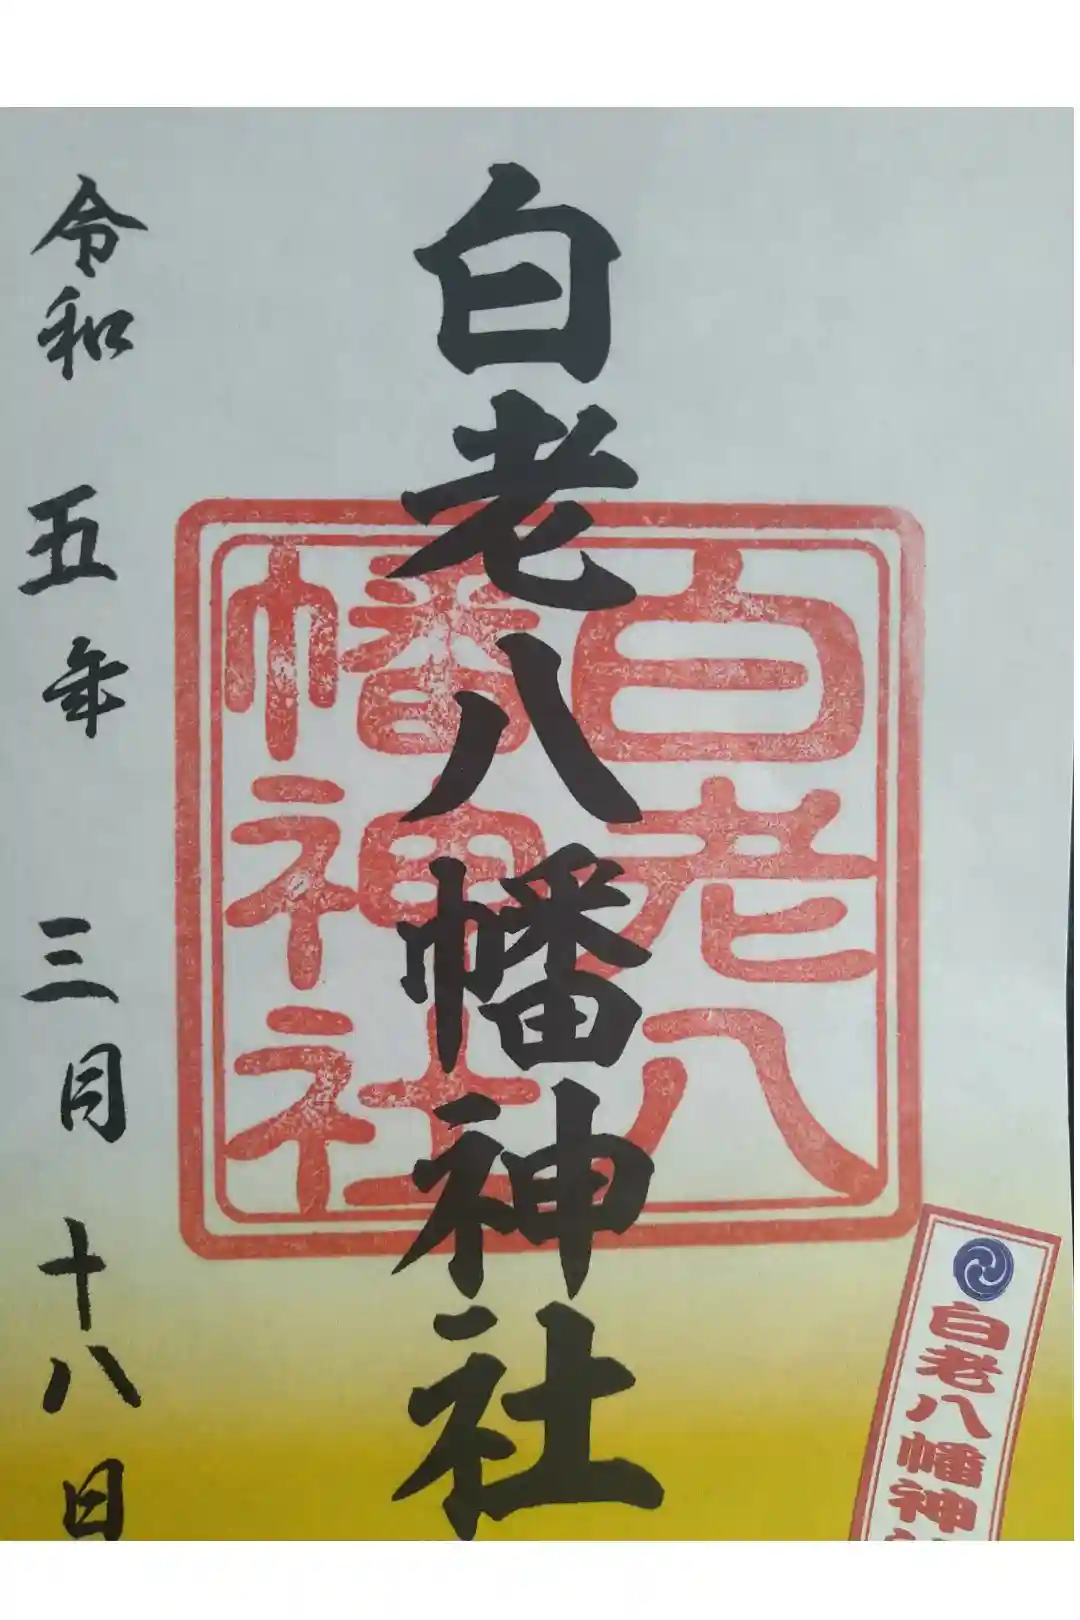 白老八幡神社
白老八
幡神社
令和 五年 三月 十八日
白老八幡神